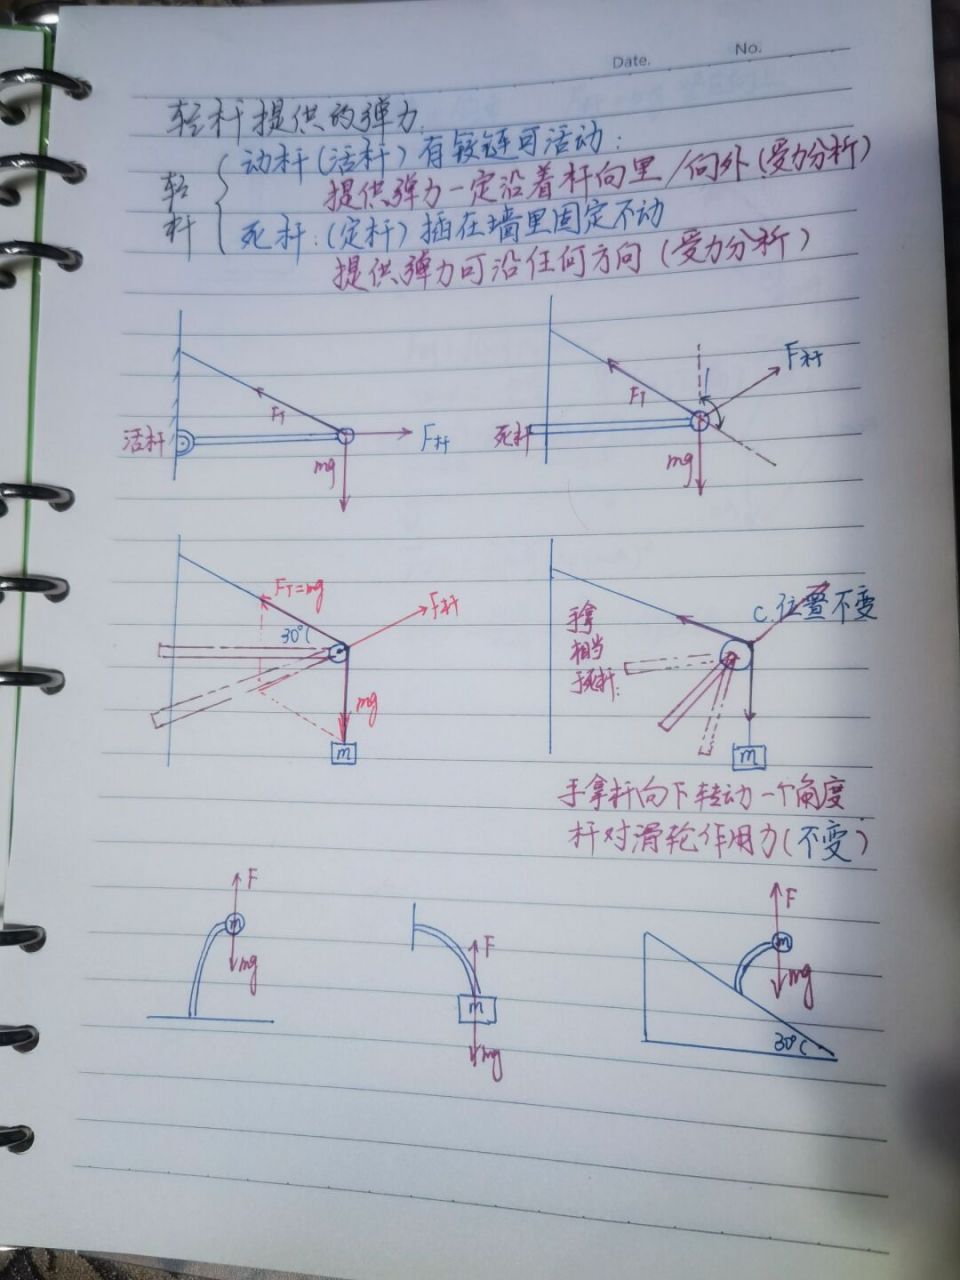 Date.
No.
轻杆提供的弹力.
轻杆
动杆(活杆)有铰链可活动:
提供弹力一定沿着杆向里/向外(受力分析)
死杆:(定杆)插在墙里固定不动
提供弹力可沿任何方向(受力分析)
活杆
FT
F杆
mg
死杆
FT
F杆
mg
FT=mg
30°
F杆
mg
m
手拿
相当
于死杆:
C.位置不变
m
手拿杆向下转动一个角度
杆对滑轮作用力(不变)
F
m
mg
F
m
mg
F
m
mg
30°